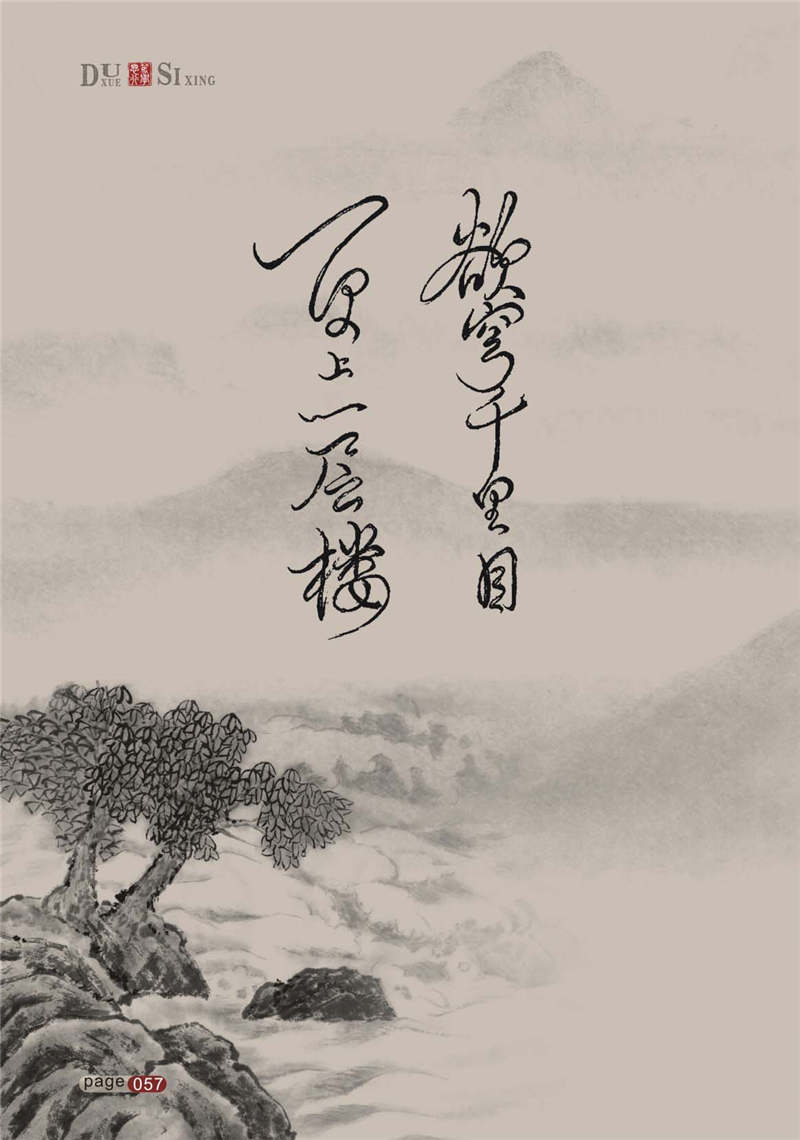 DU XUE SI XING
欲穷千里目
更上一层楼
page 057